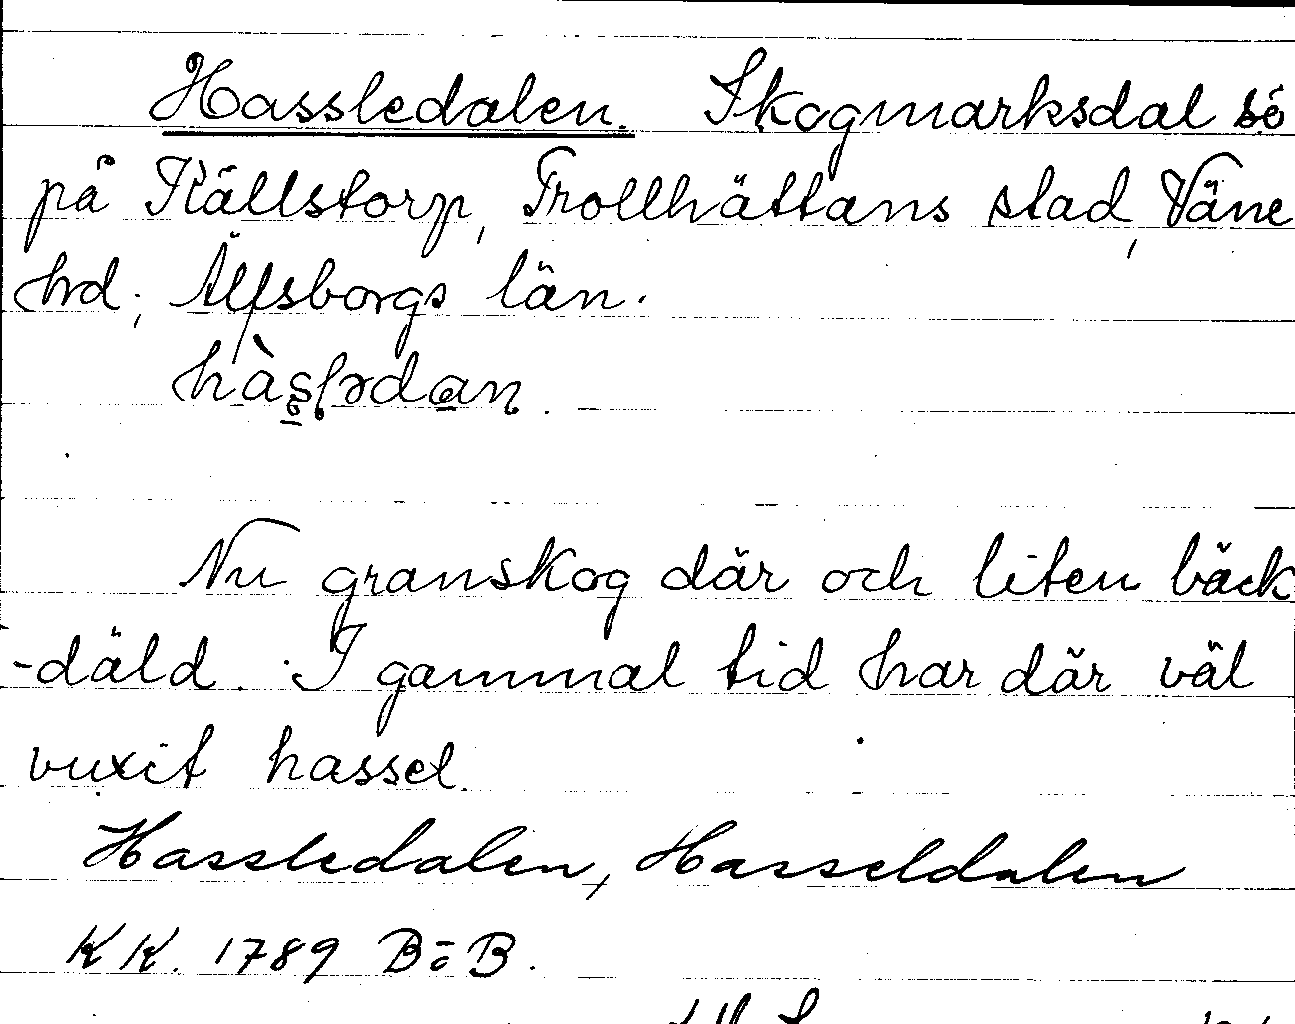 Hassledalen. Skogmarksdal sö
på Källstorp, Trollhättans stad, Väne
hrd, Älfsborgs län.
hàsləda̲n
Nu granskog där och liten bäck
-däld. I gammal tid har där väl
vuxit hassel.
Hassledalen, Hasseldalen
KK. 1789 BöB.